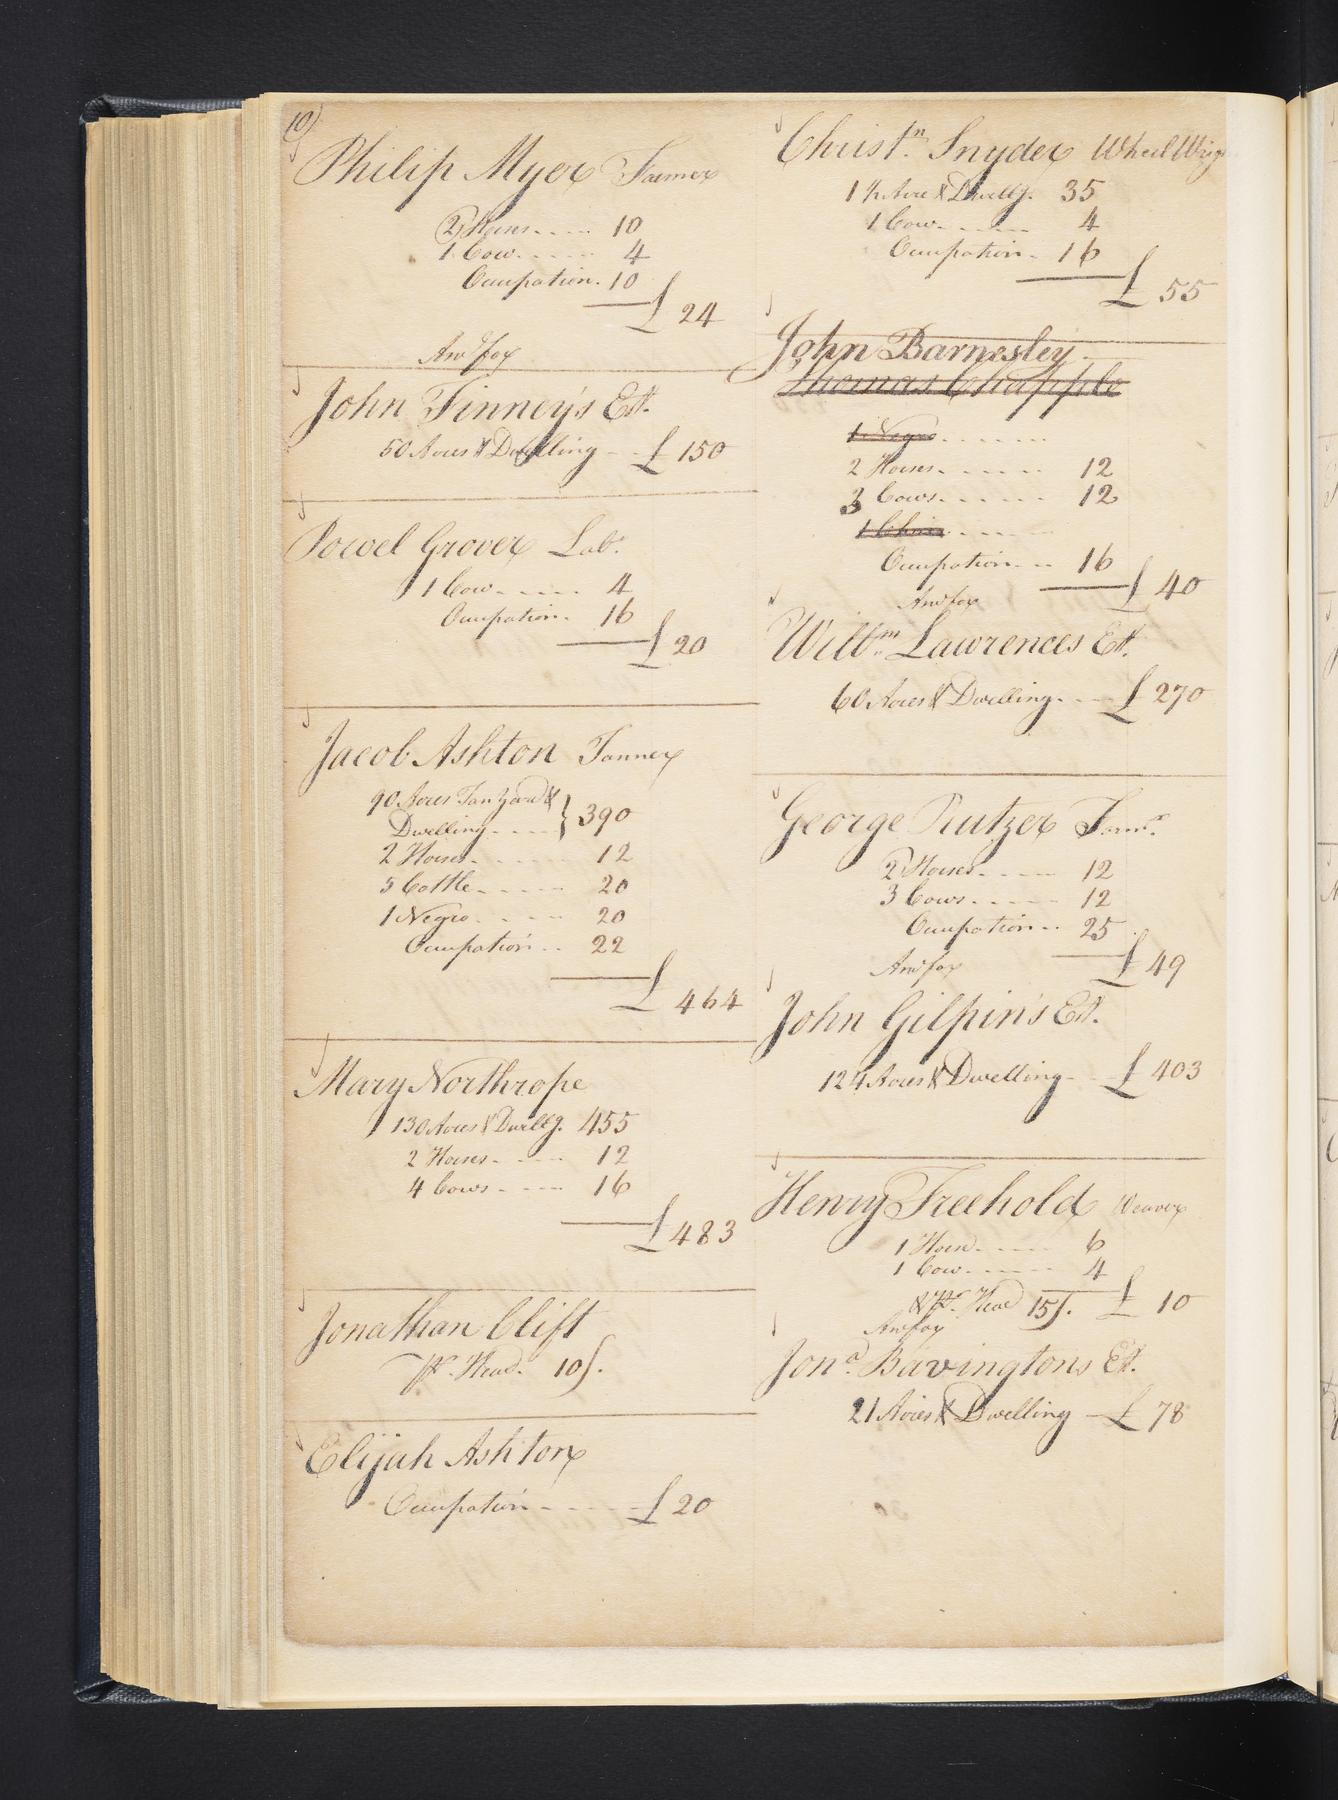 10)
Philip Myer Farmer
2 Horses ..... 10
1 Cow ..... 4
Occupation. 10
£ 24
And for
John Finney's Est.
50 Acres & Dwelling - - £ 150
Powel Grover Labr.
1 Cow ..... 4
Occupation. 16
£ 20
Jacob Ashton Tanner
90 Acres Tan Yard &
Dwelling .... } 390
2 Horses ..... 12
5 Cattle ..... 20
1 Negro .... 20
Occupation .. 22
£ 464
Mary Northrope
130 Acres & Dwellg. 455
2 Horses .... 12
4 Cows .... 16
£ 483
Jonathan Clift
Pr. Head. 10/.
Elijah Ashton
Occupation ..... £ 20
Christn. Snyder Wheel Wrig
1 1/2 Acre & Dwellg. 35
1 Cow ..... 4
Occupation. 16
£ 55
John Barnesley.
Thomas Chapple
1 Negro .......
2 Horses ..... 12
3 Cows ..... 12
1 Chair .......
Occupation ... 16
£ 40
And for
Willm. Lawrences Est.
60 Acres & Dwelling .... £ 270
George Rutzer Farmr.
2 Horses .... 12
3 Cows .... 12
Occupation .. 25
£ 49
And for
John Gilpin's Est.
124 Acres & Dwelling - £ 403
Henry Freehold Weaver
1 Horse .... 6
1 Cow .... 4
& Pr. Head 15/. £ 10
And for
Jona. Bavingtons Est.
21 Acres & Dwelling - £ 78